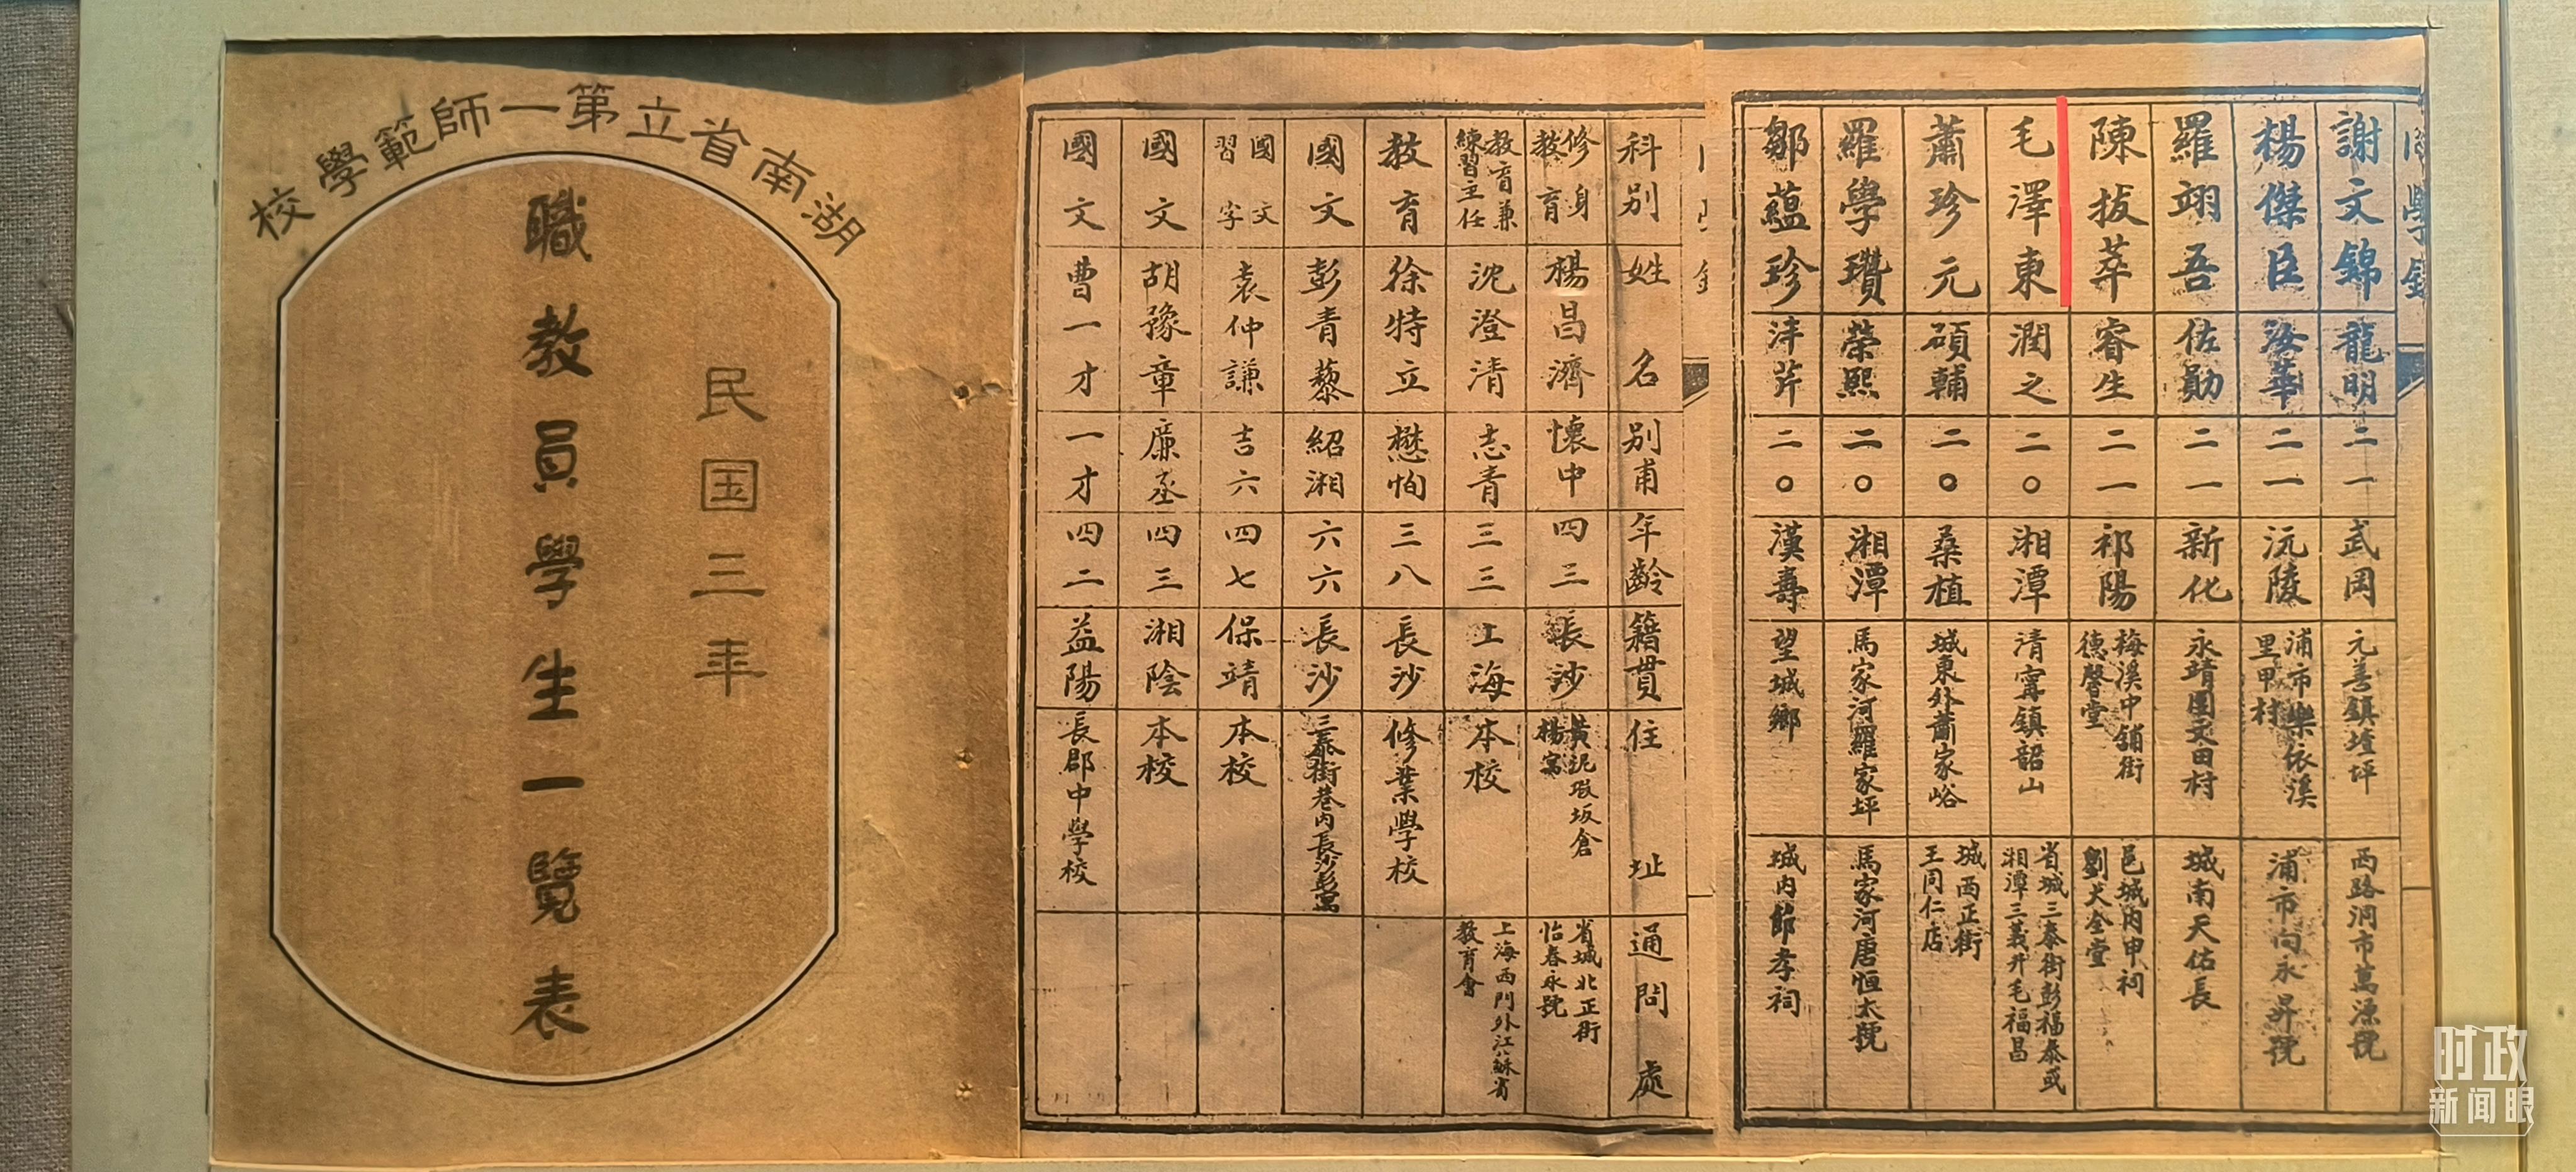 湖南省立第一師範學校
民国三年
職教員學生一覽表
科別 姓名 別甫 年齡 籍貫 住址 通問處
修身教育 楊昌濟 懷中 四三 長沙 黃泥塅坂倉楊寓 省城北正街怡春永號
教育兼練習主任 沈澄清 志青 三三 上海 本校 上海西門外江蘇省教育會
教育 徐特立 懋恂 三八 長沙 修業學校
國文 彭青藜 紹湘 六六 長沙 三泰街巷內長沙彭寓
國文習字 袁仲謙 吉六 四七 保靖 本校
國文 胡豫章 廉丞 四三 湘陰 本校
國文 曹一才 一才 四二 益陽 長郡中學校
同學錄
謝文錦 龍明 二一 武岡 元善鎮㙟坪 西路洞市萬源號
楊傑臣 海華 二一 沅陵 浦市樂依溪里甲村 浦市向永昇號
羅翊吾 佐勛 二一 新化 永靖團文田村 城南天佑長
陳拔萃 睿生 二一 祁陽 梅溪中舖街德馨堂 邑城內申祠劉大全堂
毛澤東 潤之 二〇 湘潭 清甯鎮韶山 省城三泰街彭福泰或湘潭三義升毛福昌
蕭珍元 碩輔 二〇 桑植 城東外蕭家峪 城西正街王同仁店
羅學瓚 榮熙 二〇 湘潭 馬家河羅家坪 馬家河唐恒太號
鄒蘊珍 泮芹 二〇 漢壽 望城鄉 城內節孝祠
时政
新闻眼